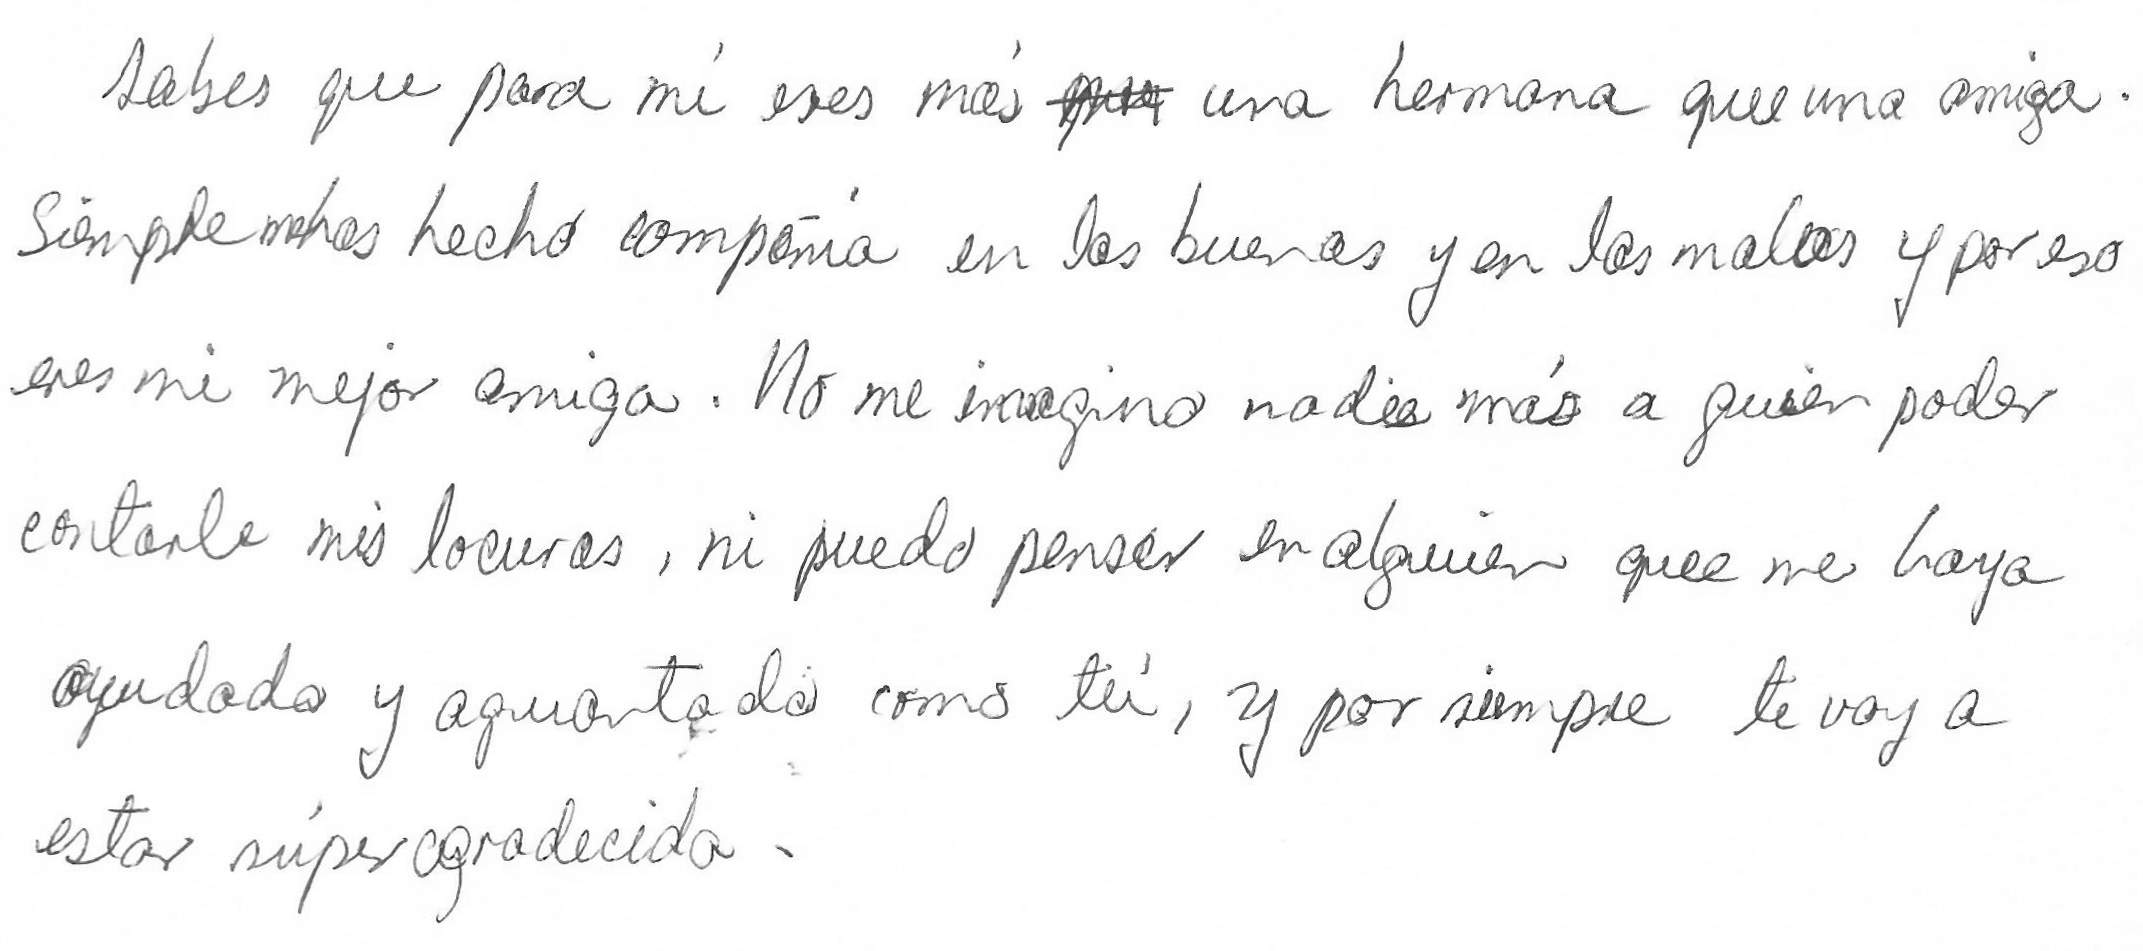 Sabes que para mí eres más una hermana que una amiga.
Siempre me has hecho compañía en las buenas y en las malas y por eso
eres mi mejor amiga. No me imagino nadie más a quien poder
contarle mis locuras, ni puedo pensar en alguien que me haya
ayudado y aguantado como tú, y por siempre te voy a
estar súper agradecida.